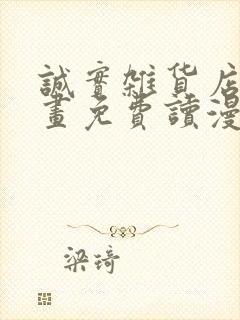 誠實雜貨店
畫免費讀漫
梁琦